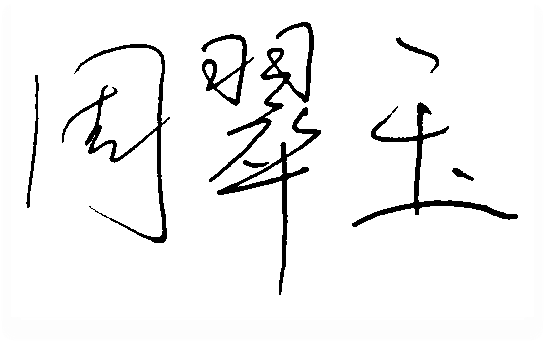 周翠玉